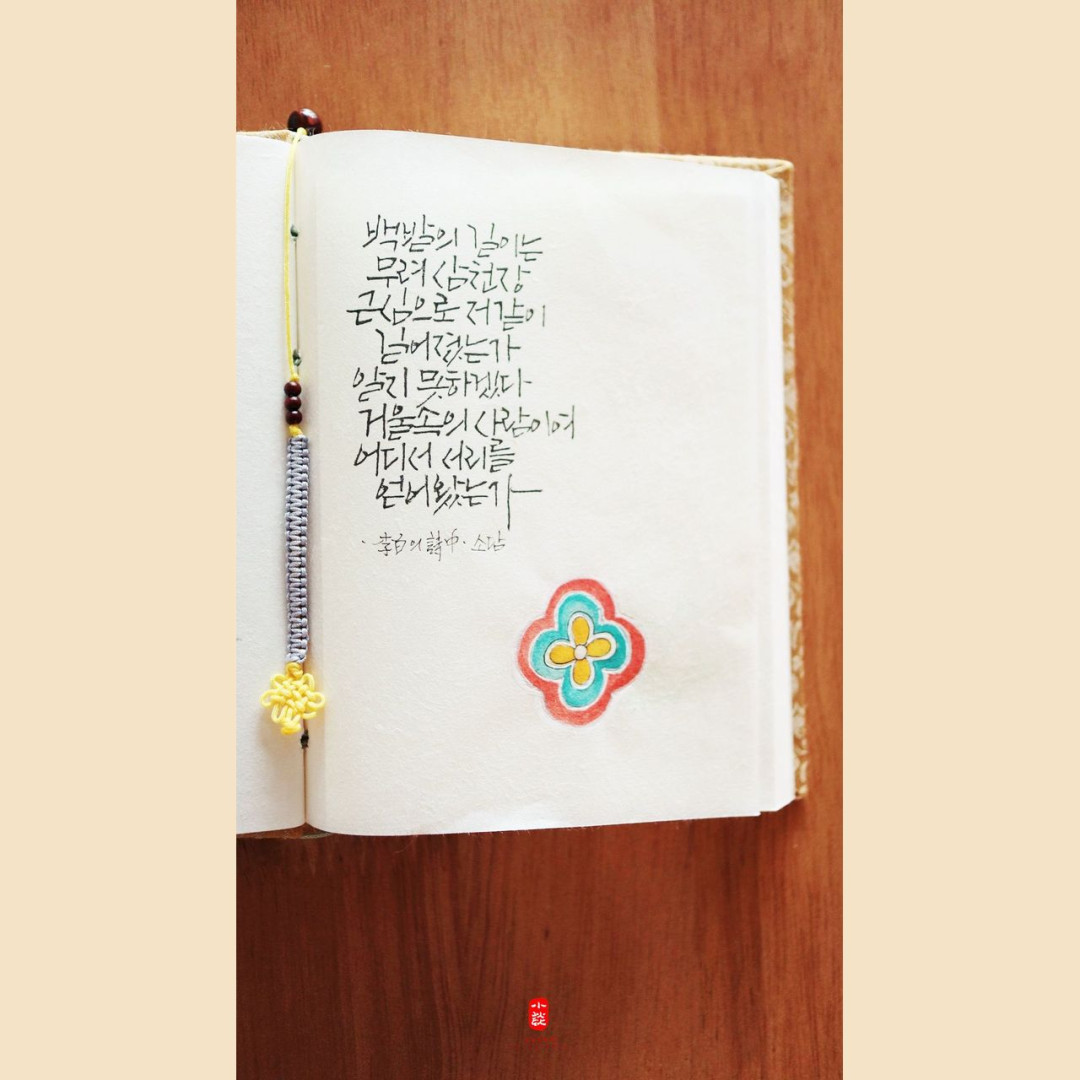 백발의 길이는
무려 삼천장
근심으로 저같이
길어졌는가
알지 못하겠다
거울속의 사람이여
어디서 서리를
얻어왔는가
·李白의 詩中· 소담
小